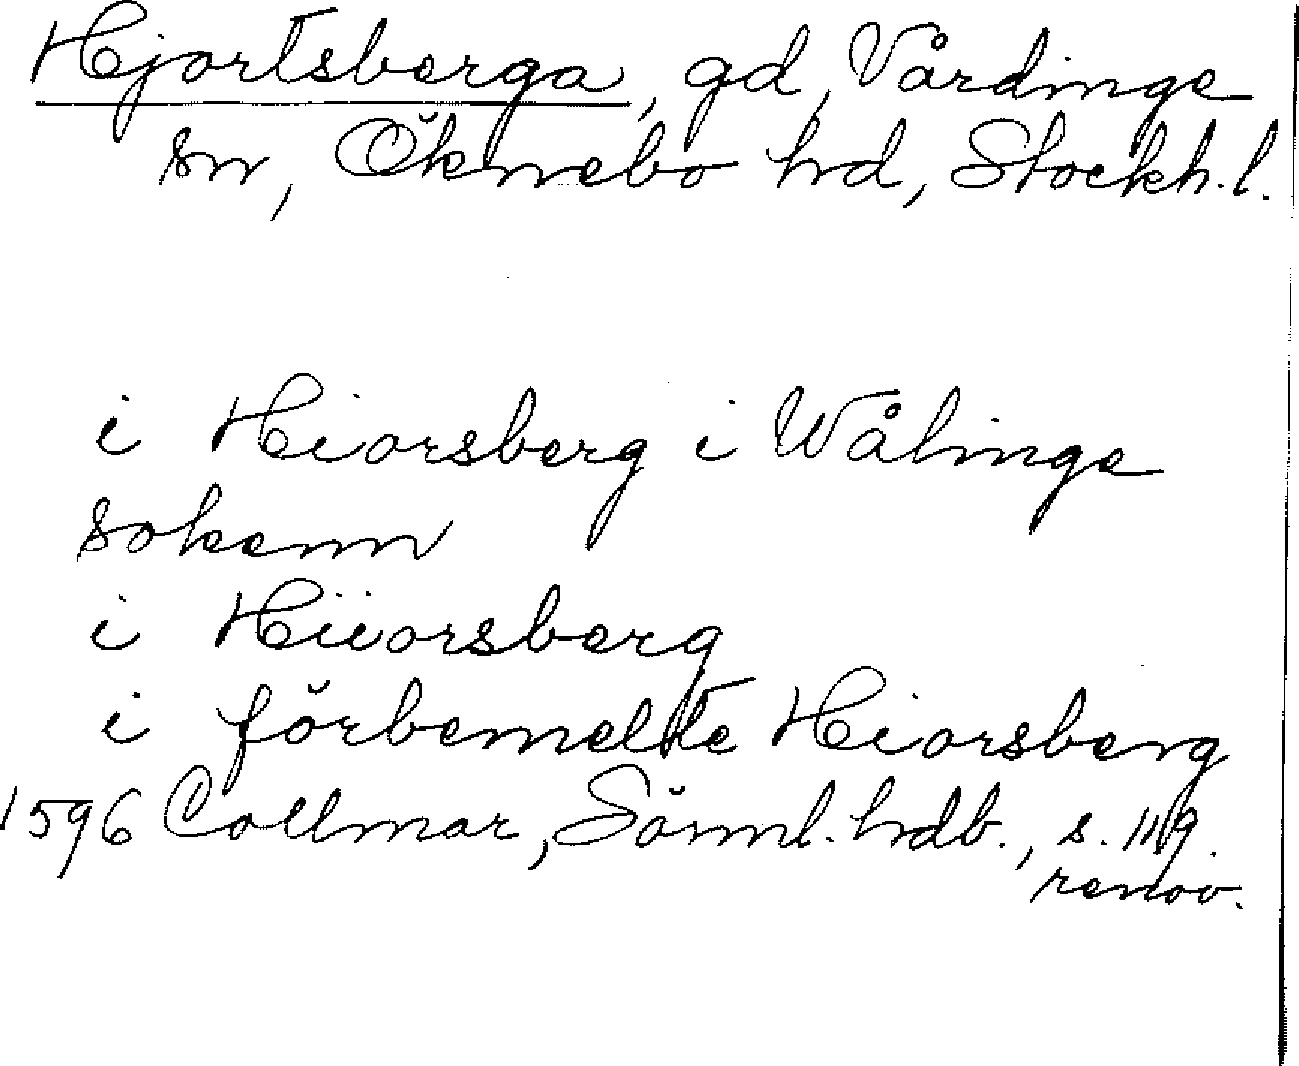 Hjortsberga, gd, Vårdinge
sn, Öknebo hd, Stockh. l.
i Hiorsberg i Wålinge
sokenn
i Hiiorsberg
i förbemelte Hiorsberg
1596 Collmar, Sörml. hdb., s. 119.
renov.